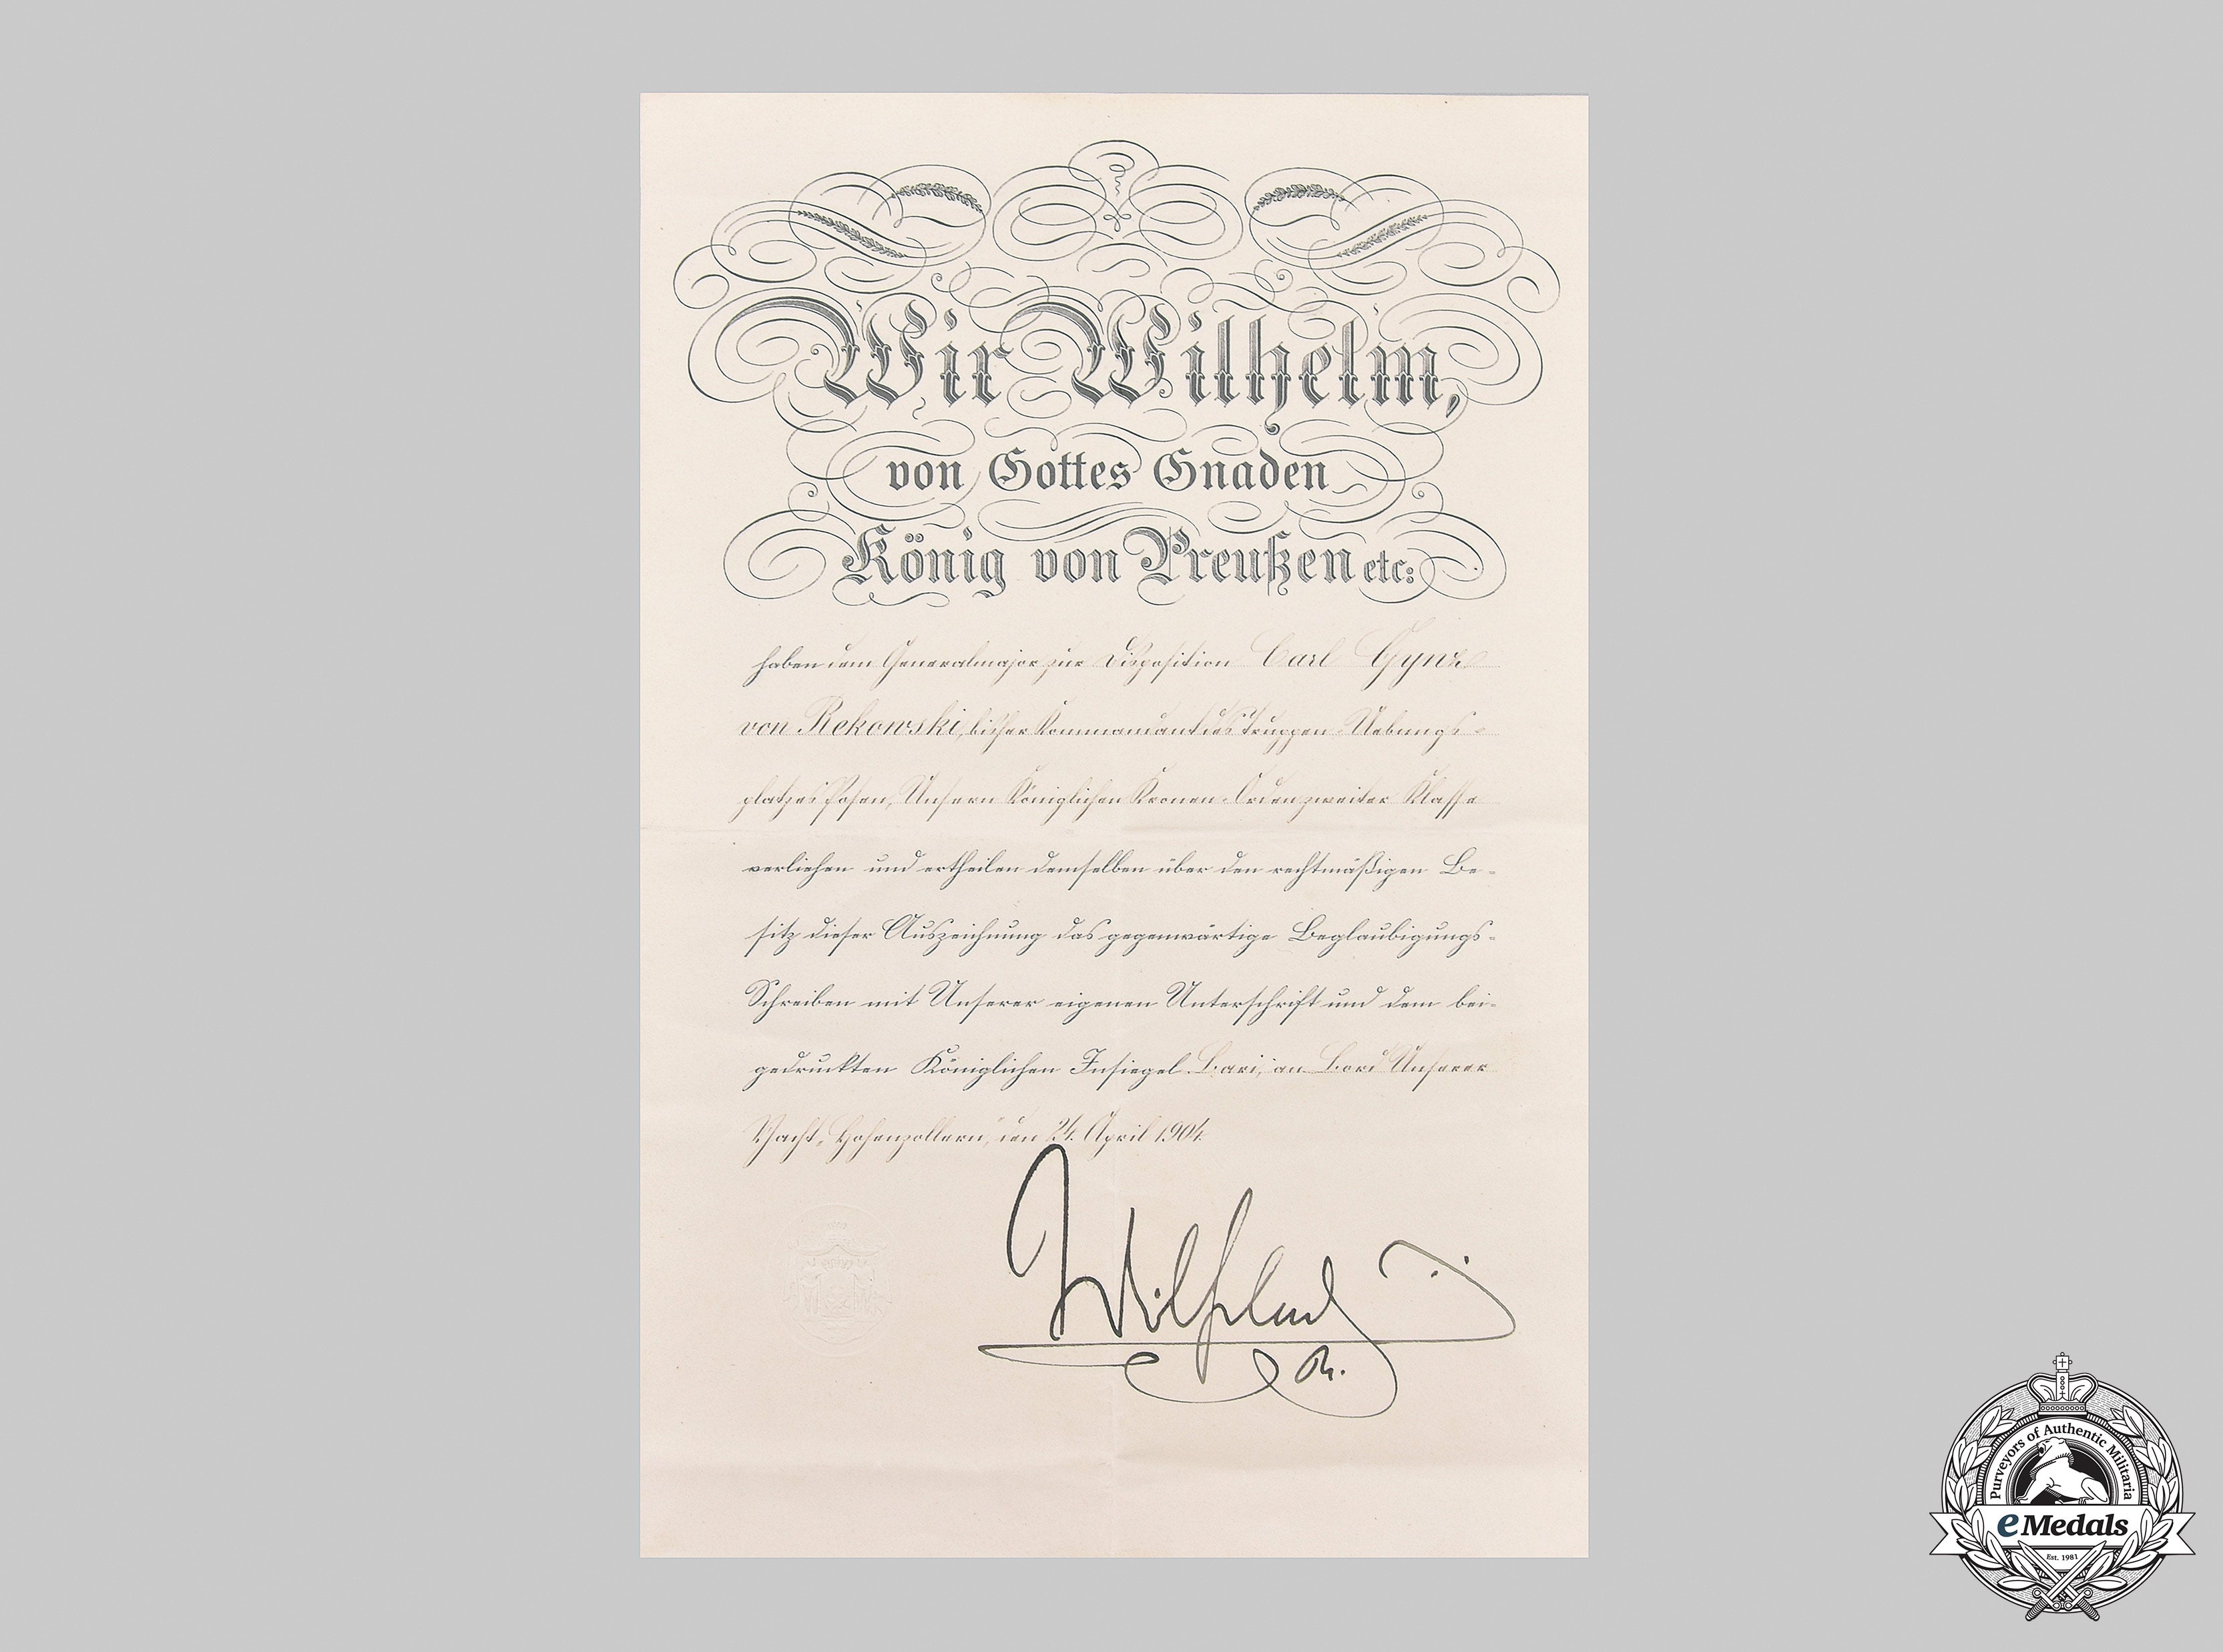 Wir Wilhelm,
von Gottes Gnaden
König von Preußen etc:
haben dem Generalmajor zur Disposition Carl Gynz
von Rekowski, bisher Kommandant des Truppen-Uebungs-
platzes Posen, Unsern Königlichen Kronen-Orden zweiter Klasse
verliehen und ertheilen demselben über den rechtmäßigen Be-
sitz dieser Auszeichnung das gegenwärtige Beglaubigungs-
Schreiben mit Unserer eigenen Unterschrift und dem bei-
gedruckten Königlichen Insiegel. Bari, an Bord Unserer
Yacht „Hohenzollern", den 24. April 1904.
Wilhelm
R.
Purveyors of Authentic Militaria
eMedals
Est. 1981